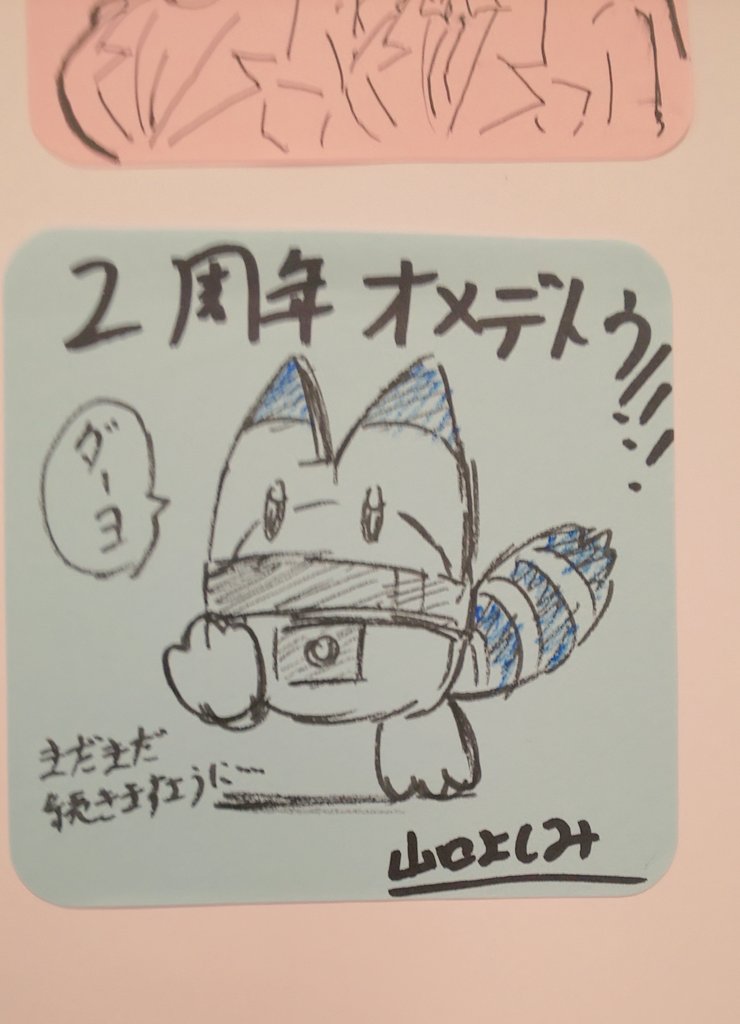 2周年オメデトゥ!!!
グーヨ
まだまだ
続きますように…
山口よしみ